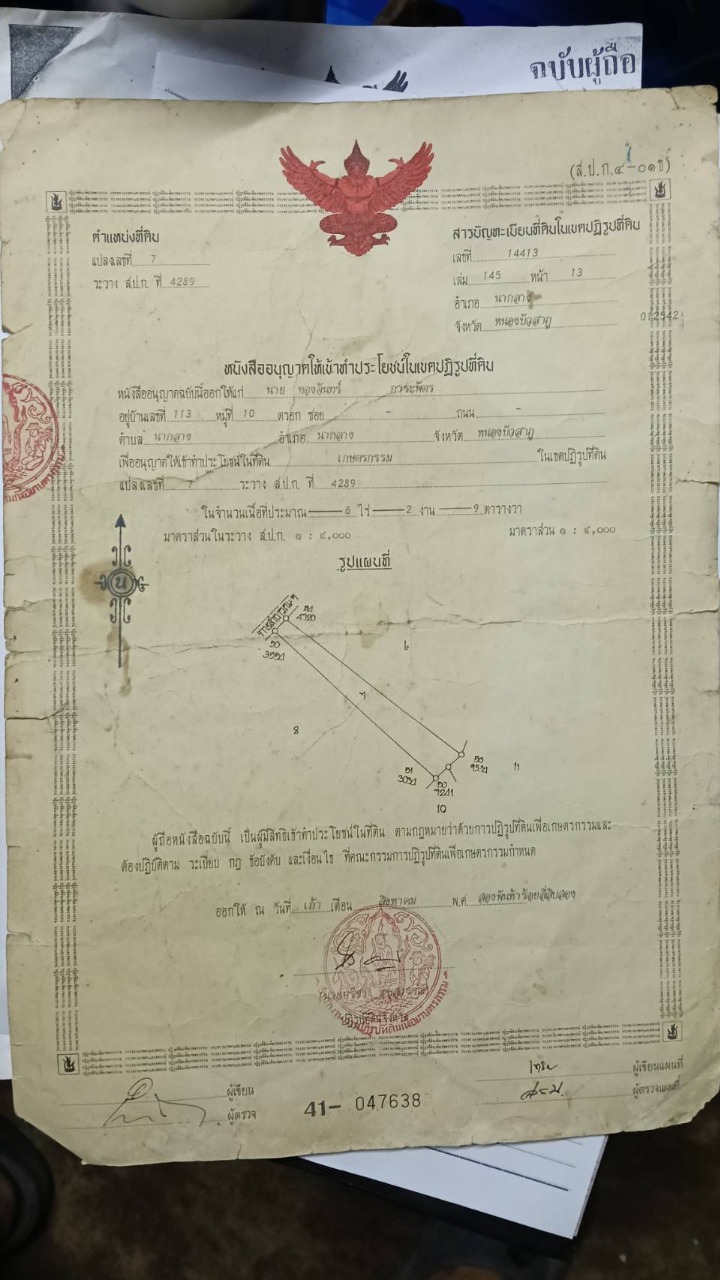 ฉบับผู้ถือ
(ส.ป.ก.๔-๐๑ข)
ตำแหน่งที่ดิน
แปลงเลขที่ 7
ระวาง ส.ป.ก. ที่ 4289
สารบัญทะเบียนที่ดินในเขตปฏิรูปที่ดิน
เลขที่ 14413
เล่ม 145 หน้า 13
อำเภอ นากลาง
จังหวัด หนองบัวลำภู
012542
หนังสืออนุญาตให้เข้าทำประโยชน์ในเขตปฏิรูปที่ดิน
หนังสืออนุญาตฉบับนี้ออกให้แก่ นาย ทองจันทร์
อยู่บ้านเลขที่ 113 หมู่ที่ 10 ตรอก ซอย - ถนน -
ตำบล นากลาง อำเภอ นากลาง จังหวัด หนองบัวลำภู
เพื่ออนุญาตให้เข้าทำประโยชน์ในที่ดิน เกษตรกรรม ในเขตปฏิรูปที่ดิน
แปลงเลขที่ 7 ระวาง ส.ป.ก. ที่ 4289
ในจำนวนเนื้อที่ประมาณ 6 ไร่ 2 งาน 9 ตารางวา
มาตราส่วนในระวาง ส.ป.ก. ๑ : ๔,๐๐๐ มาตราส่วน ๑ : ๔,๐๐๐
รูปแผนที่
น
8
11
10
ผู้ถือหนังสือฉบับนี้ เป็นผู้มีสิทธิเข้าทำประโยชน์ในที่ดิน ตามกฎหมายว่าด้วยการปฏิรูปที่ดินเพื่อเกษตรกรรมและ
ต้องปฏิบัติตาม ระเบียบ กฎ ข้อบังคับ และเงื่อนไข ที่คณะกรรมการปฏิรูปที่ดินเพื่อเกษตรกรรมกำหนด
ออกให้ ณ วันที่ เก้า เดือน สิงหาคม พ.ศ. สองพันห้าร้อยสี่สิบสอง
ปฏิรูปที่ดินจังหวัด
ผู้เขียน
ผู้ตรวจ
41- 047638
ผู้เขียนแผนที่
ผู้ตรวจแผนที่